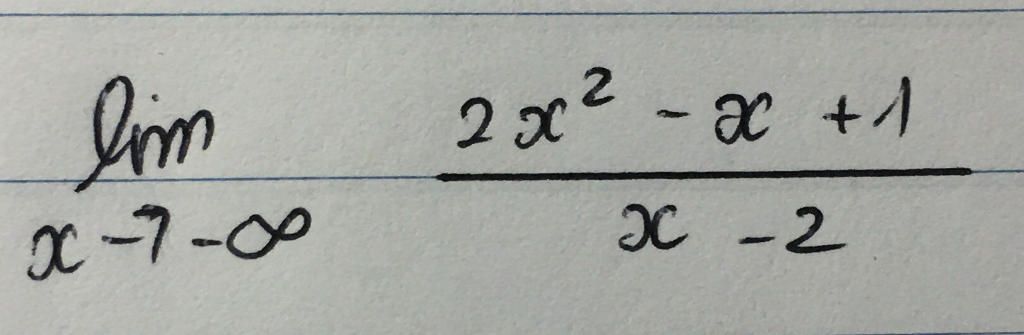 lim 2x² - x + 1
x → -∞ x - 2